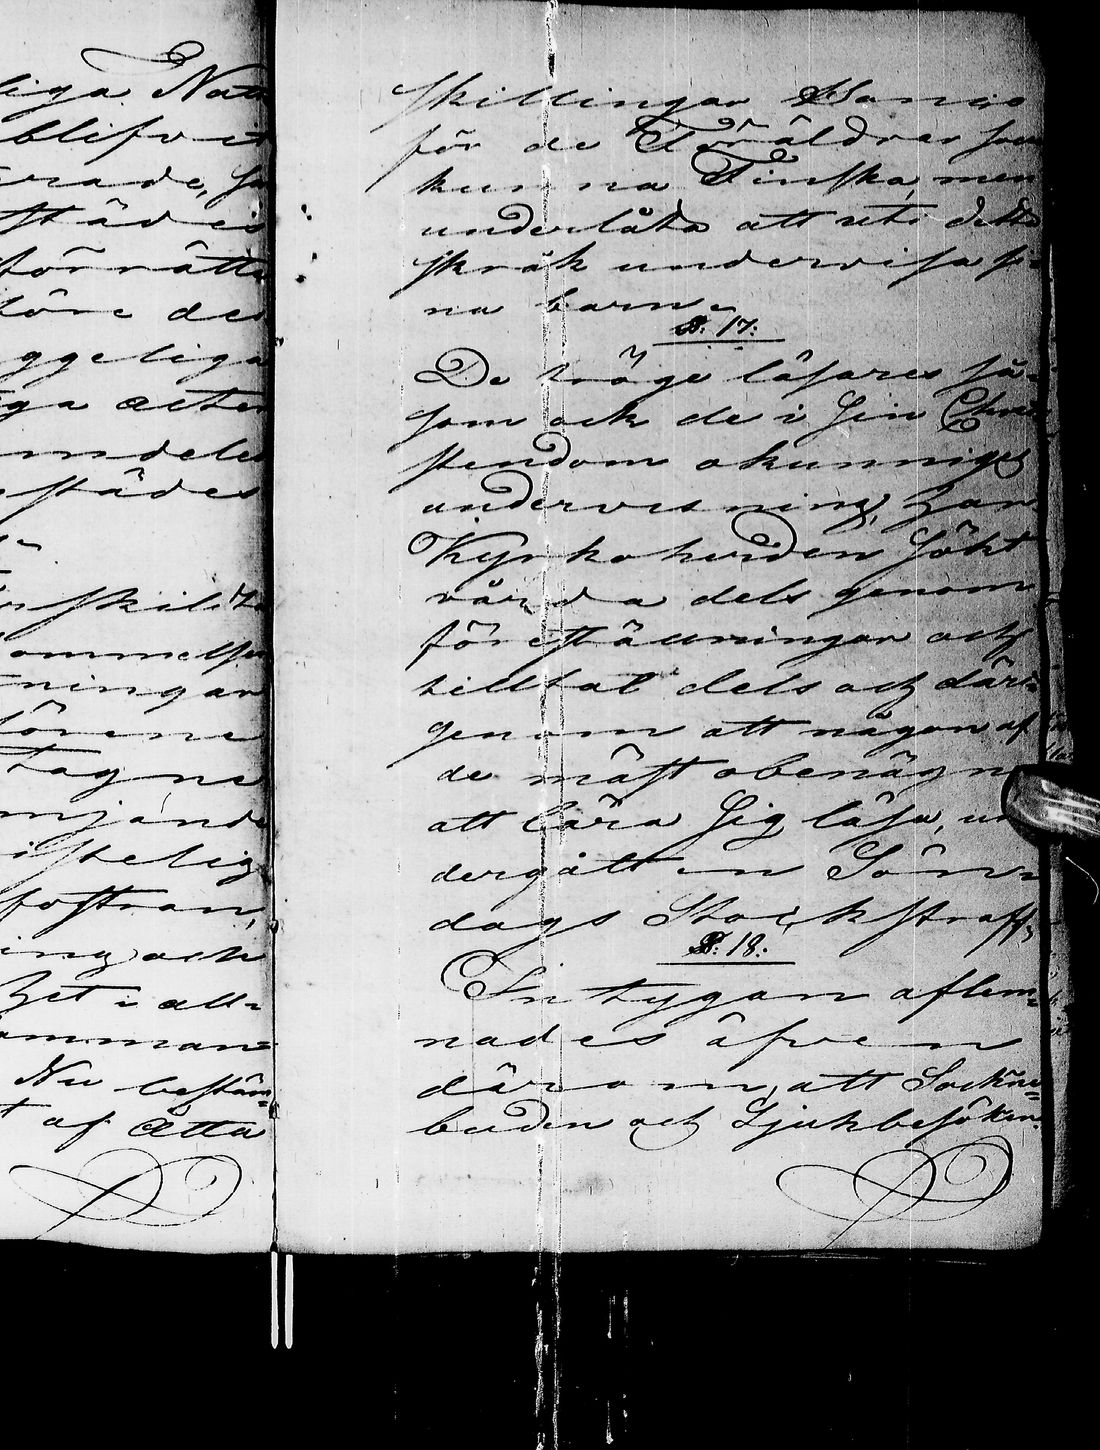 liga Natt
blifvit
rade, så
städes
förrätta
före des
ggeliga
ga acter
mdeles
städes
skilda
ommelsen
ningar
förene
tagne
mjände
istelig
fostran,
ing och
het i all=
amman=
Nu bestäm=
t af Åtta
skillingar Banco
för de Föräldrar som
kunna Finska, men
underlåta att uti detta
språk undervisa si=
na barn.
§: 17:
De tröge läsares så=
som ock de i sin Chri
stendom okunniges
undervisning, har
Kyrkoherden sökt
vårda dels genom
föreställningar och
tilltal dels och däri=
genom att någon af
de mäst obenägne
att lära sig läsa, un
dergått en Sön=
dags Stockstraff,
§: 18:
Intygan aflem=
nades äfven
därom, att Sockne=
buden och Sjukbesöken